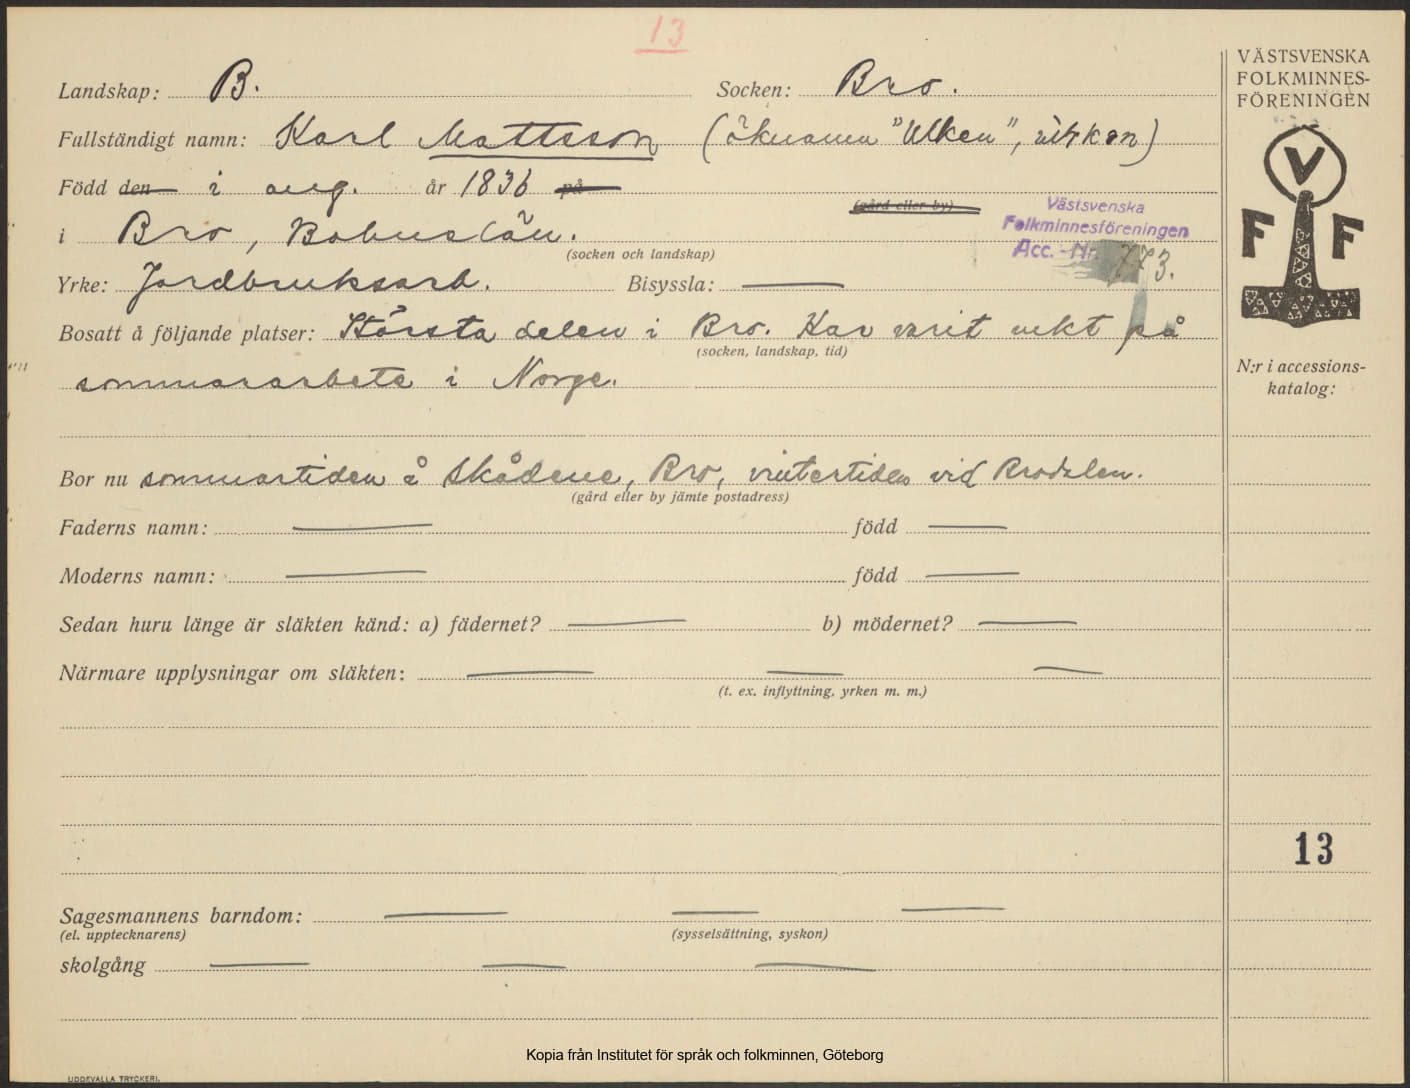 13
Landskap: B. Socken: Bro.
Fullständigt namn: Karl Mattsson (öknamn "Ulken",
Född den i aug. år 1836 på
(gård eller by)
i Bro, Bohuslän.
(socken och landskap)
Västsvenska
Folkminnesföreningen
Acc. - Nr. 773.
Yrke: Jordbruksarb. Bisyssla:
Bosatt å följande platser: Största delen i Bro. Har varit mkt på
(socken, landskap, tid)
sommararbete i Norge.
Bor nu sommartiden å Skådene, Bro, vintertiden vid Brodalen.
(gård eller by jämte postadress)
Faderns namn: född
Moderns namn: född
Sedan huru länge är släkten känd: a) fädernet? b) mödernet?
Närmare upplysningar om släkten:
(t. ex. inflyttning, yrken m. m.)
Sagesmannens barndom:
(el. upptecknarens) (sysselsättning, syskon)
skolgång
VÄSTSVENSKA
FOLKMINNES-
FÖRENINGEN
V
F F
N:r i accessions-
katalog:
13
Kopia från Institutet för språk och folkminnen, Göteborg
UDDEVALLA TRYCKERI.